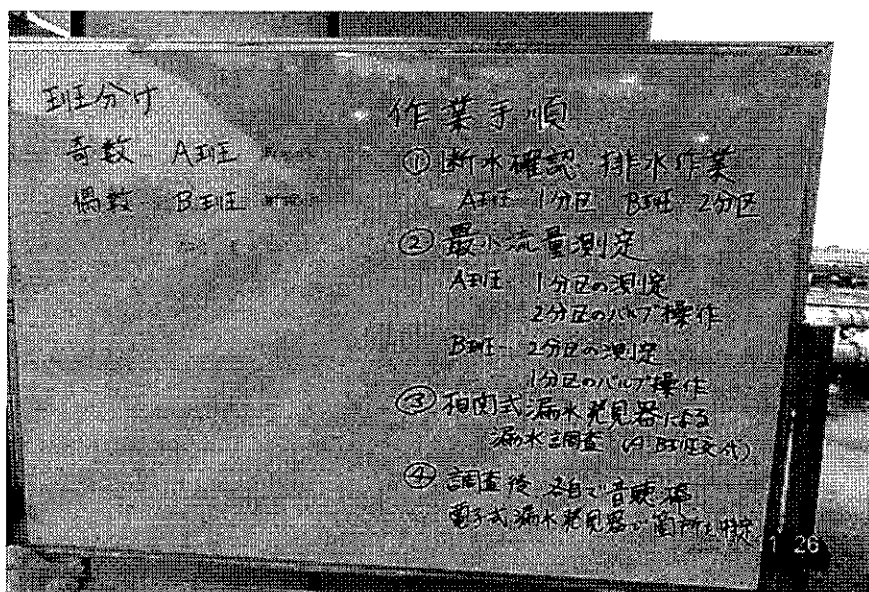 班分け
奇数 A班
偶数 B班
作業手順
① 断水確認 排水作業
A班 1分区 B班 2分区
② 最小流量測定
A班 1分区の測定
2分区のバルブ操作
B班 2分区の測定
1分区のバルブ操作
③ 相関式漏水発見器による
漏水調査 (A・B班交代)
④ 調査後 各自で音聴棒
電子式漏水発見器で箇所を特定
1 26